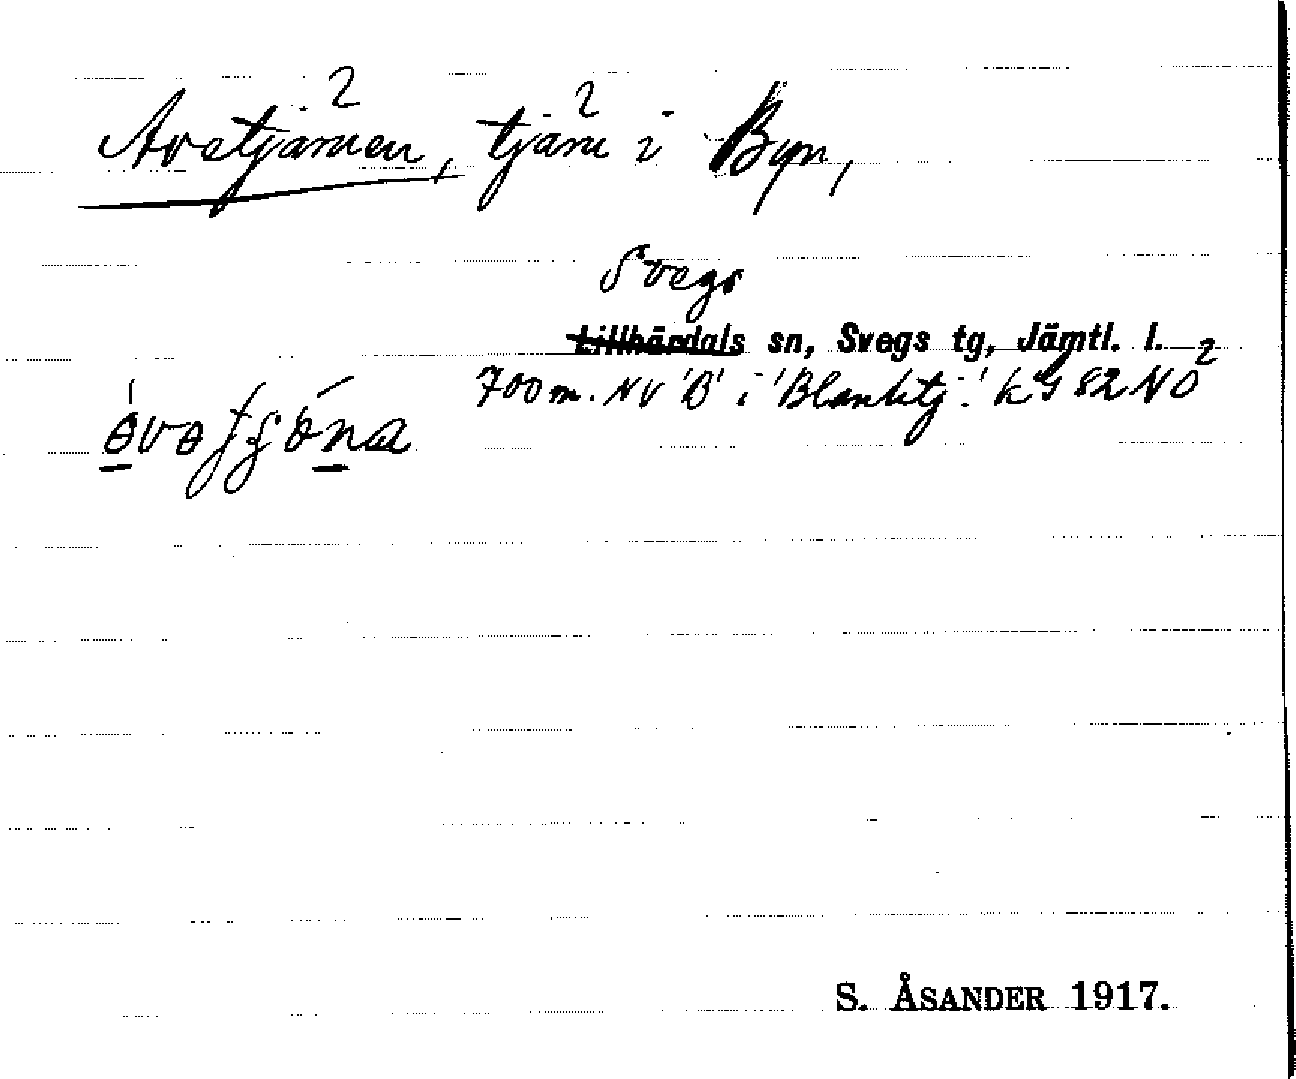 Avetjärnen, tjärn i Byn,
Svegs
Lillhärdals sn, Svegs tg, Jämtl. l.
700 m. NV 'B' i 'Blanktj.' k G 82 NO
S. ÅSANDER 1917.